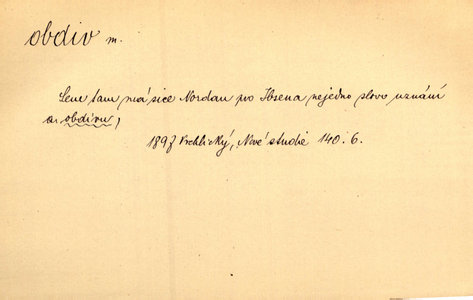 obdiv m.
Sem tam má sice Nordau pro Ibsena nejedno slovo uznání
a obdivu,
1897 Vrchlický, Nové studie 140. 6.